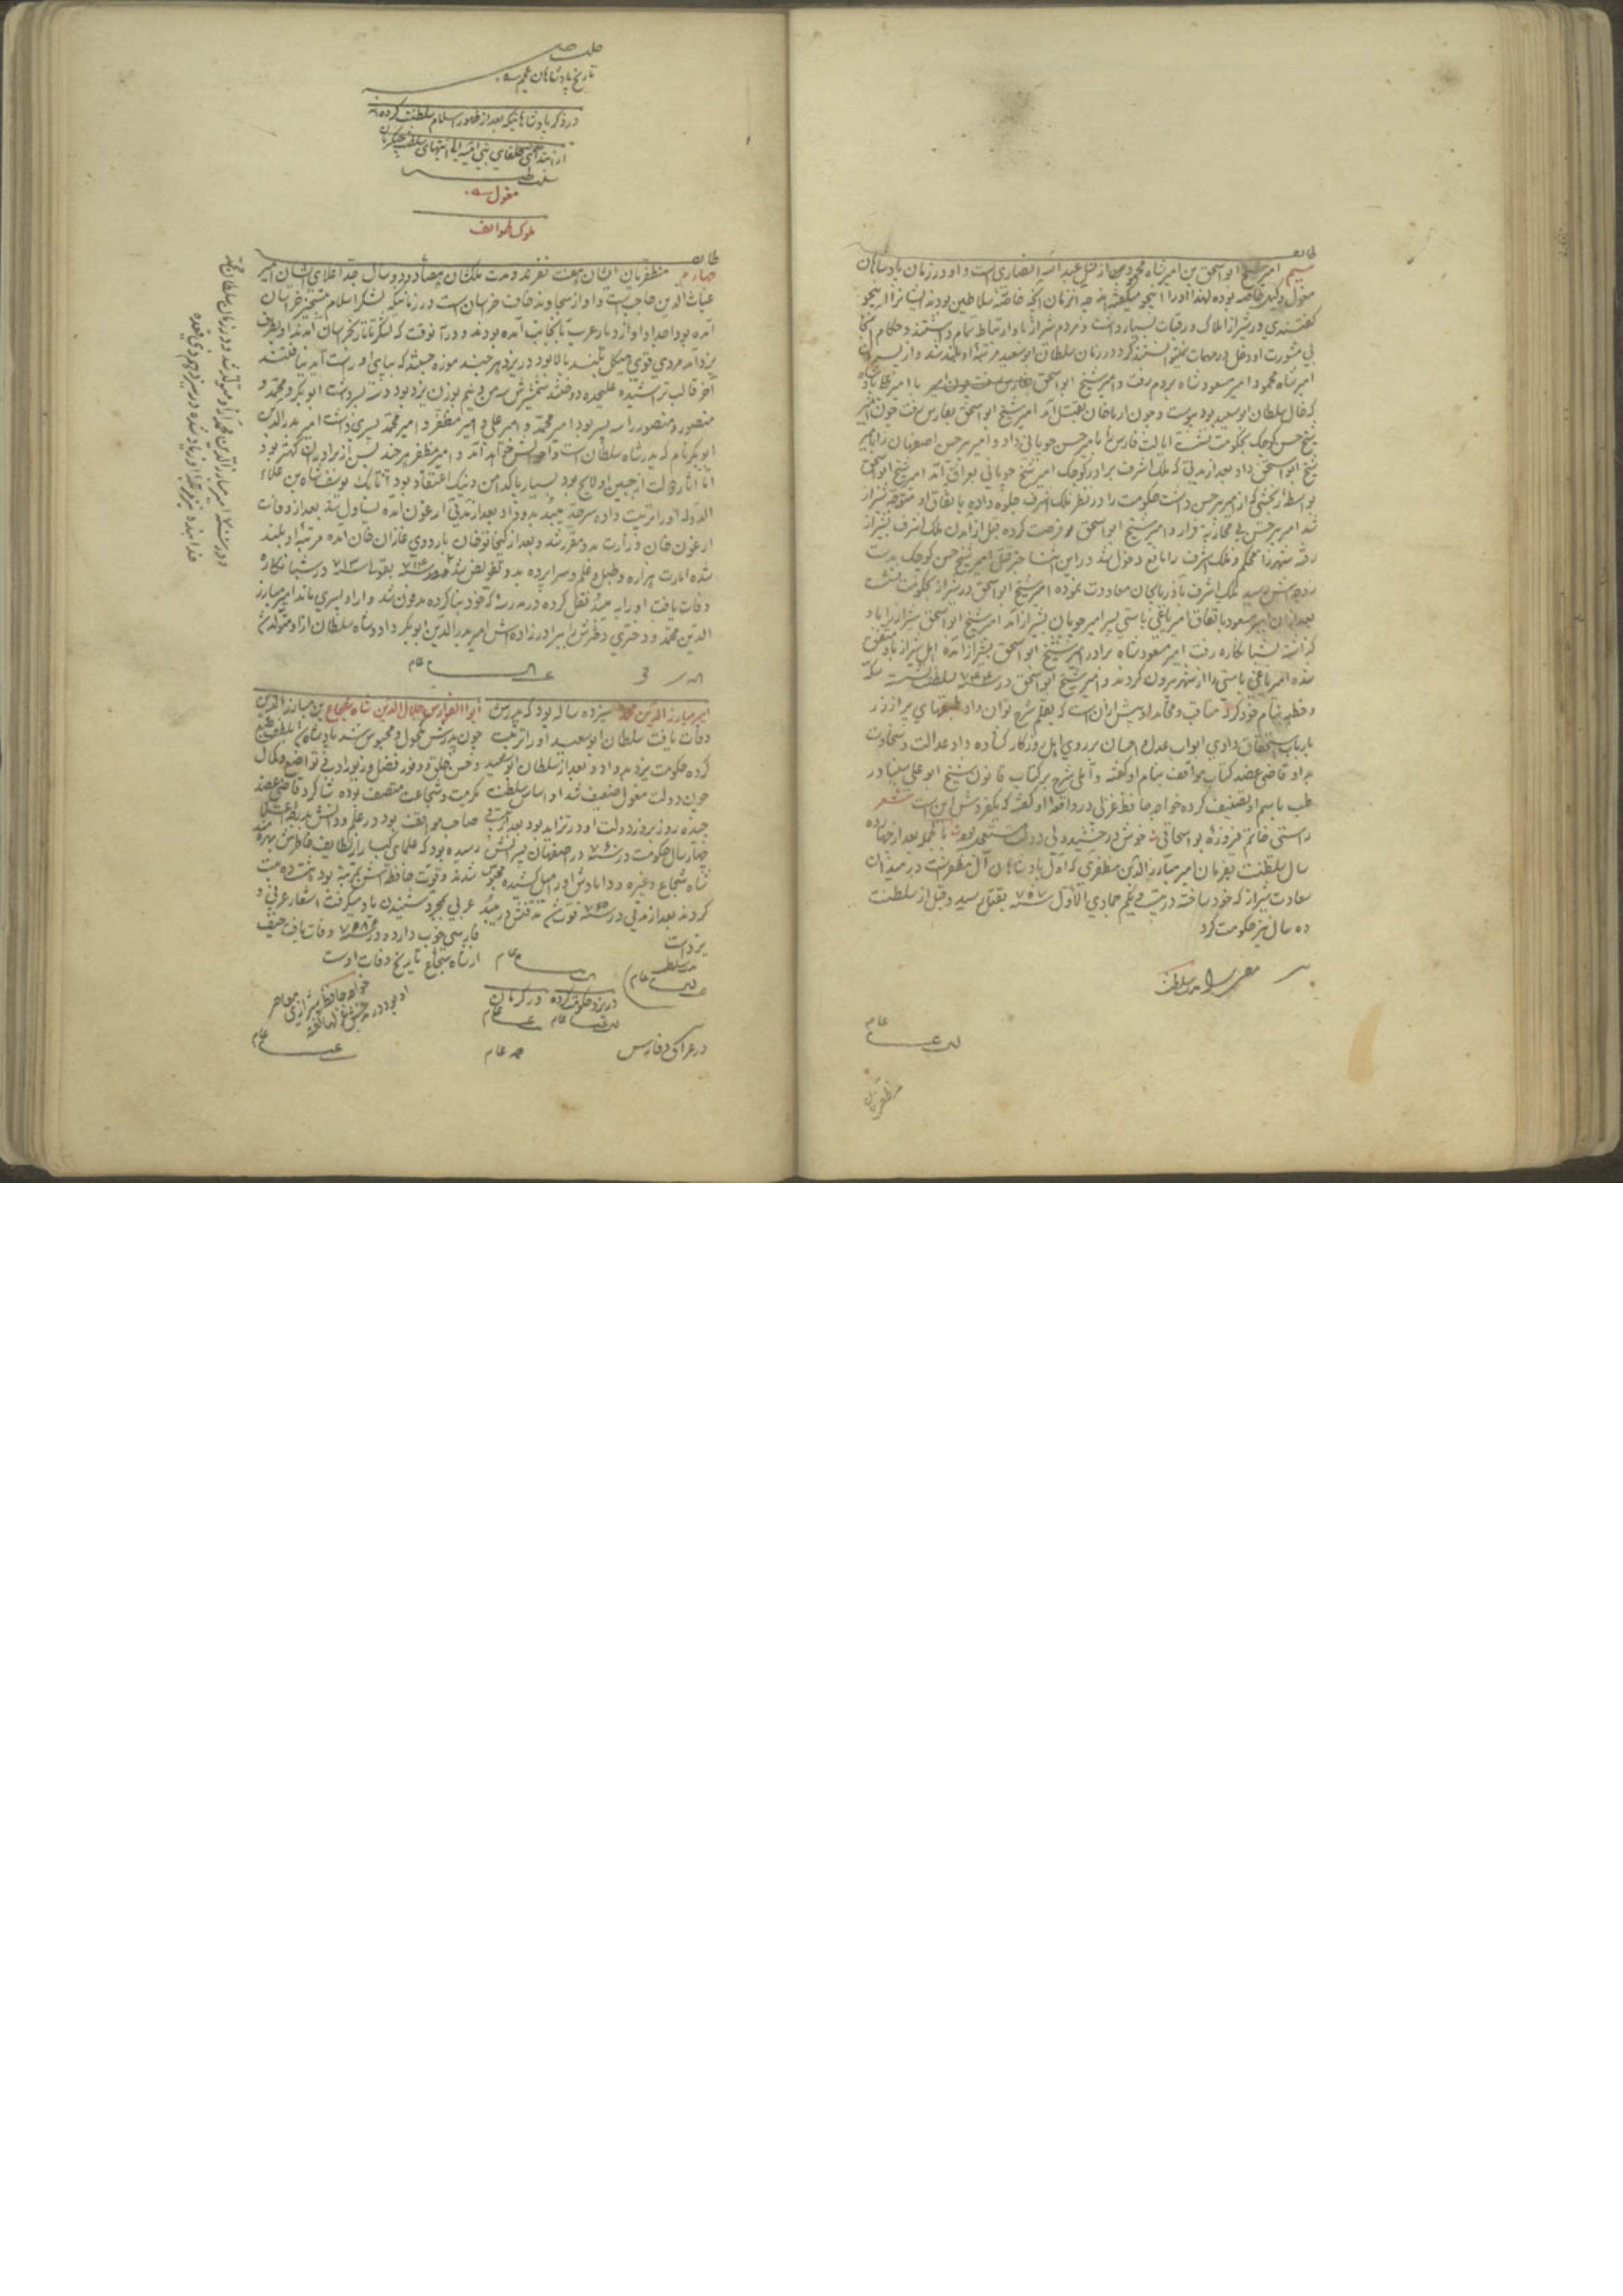 طایفه
سیم امیر شیخ ابو اسحق بن امیر شاه محمود از نسل عبد الله انصاری است و او در زمان پادشاهان
مغول وکیل خاصه بوده لهذا او را اینجو میگفته‌اند چه در آن زمان آنچه خاصهٔ سلاطین بودند ایشانرا اینجو
گفتندی و در شیراز املاک و رقبات بسیار داشت و مردم شیراز باو ارتباط تمام داشتند و حکام آنجا
بی مشورت او دخل در مهمات نمیتوانستند کرد و در زمان سلطان ابو سعید مرتبهٔ او بلند شد و از پسران
امیر شاه محمود امیر مسعود شاه بروم رفت و امیر شیخ ابو اسحق با امیر علی پادشاه
که خال سلطان ابو سعید بود پیوست و چون ارپاخان بقتل آمد امیر شیخ ابو اسحق بفارس رفت چون امیر
شیخ حسن کوچک بحکومت نشست ایالت فارس را بامیر حسن چوپانی داد و امیر پیر حسن اصفهان را بامیر
شیخ ابو اسحق داد بعد از مدتی که ملک اشرف برادر کوچک امیر شیخ چوپانی بعراق آمد امیر شیخ ابو اسحق
بواسطهٔ رنجشی که از امیر پیر حسن داشت حکومت را در نظر ملک اشرف جلوه داده باتفاق او متوجه شیراز
شد امیر پیر حسن بی محاربه فرار و امیر شیخ ابو اسحق فرصت کرده قبل از آمدن ملک اشرف بشیراز
رفته شهر را محکم و ملک اشرف را مانع دخول شد در این اثنا خبر قتل امیر شیخ حسن کوچک بدست
زوجه‌اش رسید ملک اشرف بآذربایجان معاودت نموده امیر شیخ ابو اسحق در شیراز بحکومت نشست
بعد از آن امیر مسعود باتفاق امیر یاغی باستی پسر امیر چوپان بشیراز آمد امیر شیخ ابو اسحق شیراز را باو
گذاشته بشبانکاره رفت امیر مسعود شاه برادر امیر شیخ ابو اسحق بشیراز آمده اهل شیراز باو متفق
شده امیر یاغی باستی را از شهر بیرون کردند و امیر شیخ ابو اسحق در سنه ۷۴۴ بسلطنت نشسته سکه
و خطبه بنام خود کرد مناقب و محامد او بیش از آن است که بقلم شرح توان داد طبقهای پر از زر
بارباب استحقاق دادی ابواب عدل و احسان بر روی اهل روزکار کشاده داد عدالت و سخاوت
بداد قاضی عضد کتاب مواقف بنام او گفته و آملی شرح بر کتاب قانون شیخ ابو علی سینا در
طب باسم او تصنیف کرده خواجه حافظ غزلی در واقعهٔ او گفته که یکفردش این است شعر
راستی خاتم فیروزهٔ بو اسحاقی ** خوش درخشید ولی دولت مستعجل بود بالجمله بعد از چهارده
سال سلطنت بفرمان امیر مبارز الدین مظفری که اول پادشاهان آل مظفر است در میدان
سعادت شیراز که خود ساخته در بیست و یکم جمادی الاول سنه ۷۵۷ بقتل رسید و قبل از سلطنت
ده سال نیز حکومت کرد
مدت سلطنت
عام
مظفریان
تاریخ پادشاهان عجم
در ذکر پادشاهانیکه بعد از ظهور اسلام سلطنت کرده‌اند
از ابتدای خلفای بنی امیه الی انتهای سلطنت چنگیزیان
سلطنت
مغول
ملوک طوایف
طایفه
چهارم مظفریان ایشان هفت نفرند و مدت ملکشان هفتاد و دو سال جد اعلای ایشان امیر
غیاث الدین حاجب است و او از سجاوند خاف خراسان است در زمانیکه لشکر اسلام بتسخیر خراسان
آمده بود اجداد او از دیار عرب بآنجانب آمده بودند و در آنوقت که لشکر تاتار بخراسان آمدند او بطرف
یزد آمد مردی قوی هیکل بلند بالا بود در یزد هر چند موزه جستند که بپای او راست آید نیافتند
آخر قالب تراشیده علیحده دوختند شمشیرش سه من و نیم بوزن یزد بود و سه پسر داشت ابو بکر و محمد و
منصور و منصور را سه پسر بود امیر محمد و امیر علی و امیر مظفر و امیر محمد پسری داشت امیر بدر الدین
ابو بکر نام که پدر شاه سلطان است و احوالش خواهد آمد و امیر مظفر هر چند بسن از برادران کهتر بود
اما آثار دولت از جبین او لایح بود بسیار پاکدامن و نیک اعتقاد بود اتابک یوسف شاه بن علاء
الدوله او را تربیت داده سرحد میبد بدو داد بعد از مدتی ارغون آمده یساول شد بعد از وفات
ارغون خان وزارت بدو مقرر شد و بعد از کیخاتو خان باردوی غازان خان آمده مرتبهٔ او بلند
شده امارت هزاره و طبل و علم و سراپرده بدو تفویض شد در سنه ۷۱۴ بقولی سنه ۷۱۳ در شبانکاره
وفات یافت او را به میبد نقل کرده در مدرسهٔ که خود بنا کرده مدفون شد و از او پسری ماند امیر مبارز
الدین محمد و دختری دخترش را ببرادر زاده‌اش امیر بدر الدین ابو بکر داد و شاه سلطان از او متولد شد
عام
امیر مبارز الدین محمد سیزده ساله بود که پدرش
وفات یافت سلطان ابو سعید او را تربیت
کرده حکومت یزد بدو داد و بعد از سلطان ابو سعید
چون دولت مغول ضعیف شد او اساس سلطنت
چیده روز بروز دولت او در تزاید بود بعد از
چهار سال حکومت در سنه ۷۶۰ در اصفهان پسرانش
شاه شجاع و غیره و دامادش او را میل کشیده محبوس
کردند بعد از مدتی در سنه ۷۶۵ فوت شد نعشش در میبد
یزد است
مدت سلطنت
عام
عام
در یزد حکومت کرده در کرمان
عام عام
در عراق و فارس عام
ابو الفوارس جلال الدین شاه شجاع بن مبارز الدین
چون پدرش مکحول و محبوس شد پادشاه
و حسن خلق و وفور فضل و زیور ادب و تواضع و کمال
مکرمت و شجاعت متصف بوده شاکرد قاضی عضد
صاحب مواقف بود در علم و دانش
رسیده بود که علمای کبار از لطایف خاطرش بهره
شدند و قوت حافظه‌اش بمرتبهٔ بود هشت ده بیت
عربی بمجرد شنیدن یاد میگرفت اشعار عربی و
فارسی خوب دارد و در سنه ۷۸۶ وفات یافت حیف
از شاه شجاع تاریخ وفات اوست
خواجه حافظ شیرازی معاصر
او بود در مدحش غزلها گفته
عام
و در سنه ۷۰۰ امیر مبارز الدین محمد از او متولد شد و در زمان سلطان محمد
خدابنده نیز مرتبهٔ او زیاد شده در سیزدهم ذی قعده